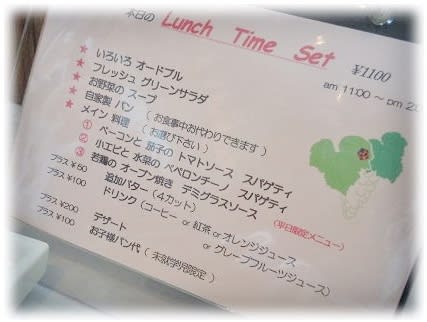 本日の Lunch Time Set ¥1100
am 11:00 ～ pm 2:
★ いろいろ オードブル
★ フレッシュ グリーンサラダ
★ お野菜の スープ
★ 自家製 パン （ お食事中お代わりできます ）
★ メイン 料理 （ お選び下さい ）
① ベーコンと 茄子の トマトソース スパゲティ
② 小エビと 水菜の ペペロンチーノ スパゲティ
③ 若鶏の オーブン焼き デミグラスソース (平日限定メニュー)
プラス ¥50 追加バター (4カット)
プラス ¥100 ドリンク (コーヒー or 紅茶 or オレンジジュース
or グレープフルーツジュース)
プラス ¥200 デザート
プラス ¥100 お子様パン代 ( 未就学児限定 )